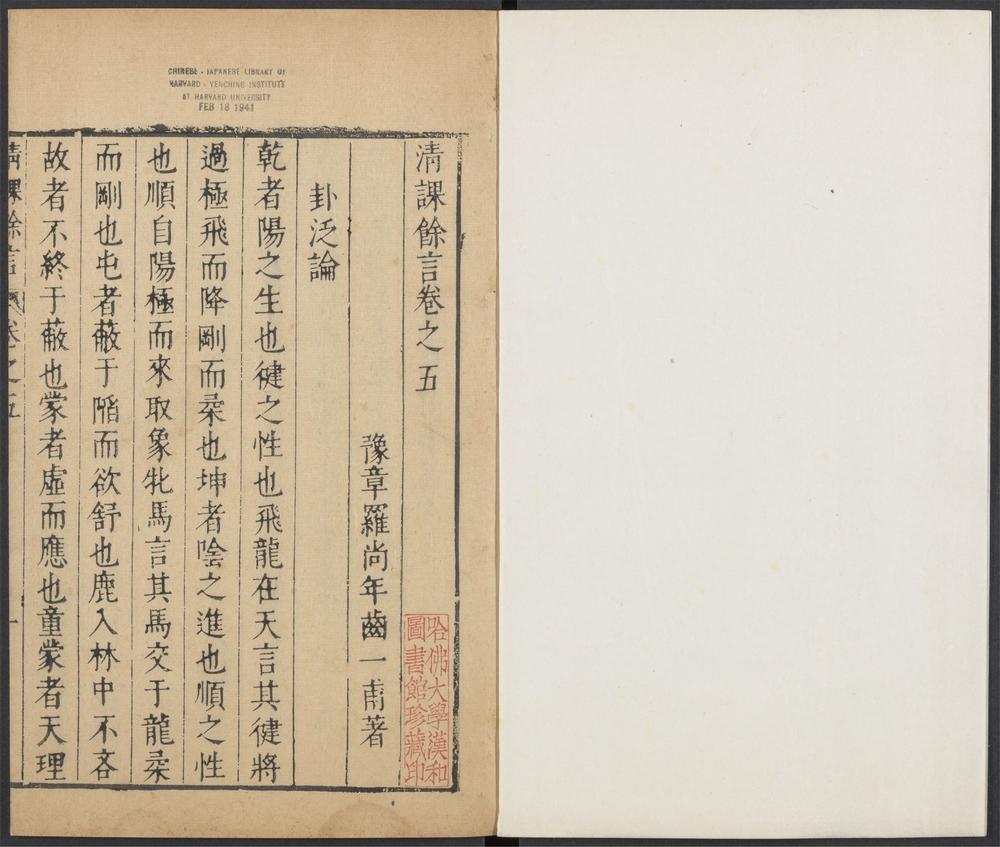 CHINESE - JAPANESE LIBRARY OF
HARVARD - YENCHING INSTITUTE
AT HARVARD UNIVERSITY
FEB 18 1941
清課餘言卷之五
豫章羅尚年齒一甫著
卦泛論
乾者陽之生也健之性也飛龍在天言其健將
過極飛而降剛而柔也坤者陰之進也順之性
也順自陽極而來取象牝馬言其馬交于龍柔
而剛也屯者蔽于陷而欲舒也鹿入林中不吝
故者不終于蔽也蒙者虛而應也童蒙者天理
清課餘言
卷之五
一
哈佛大學漢和
圖書館珍藏印